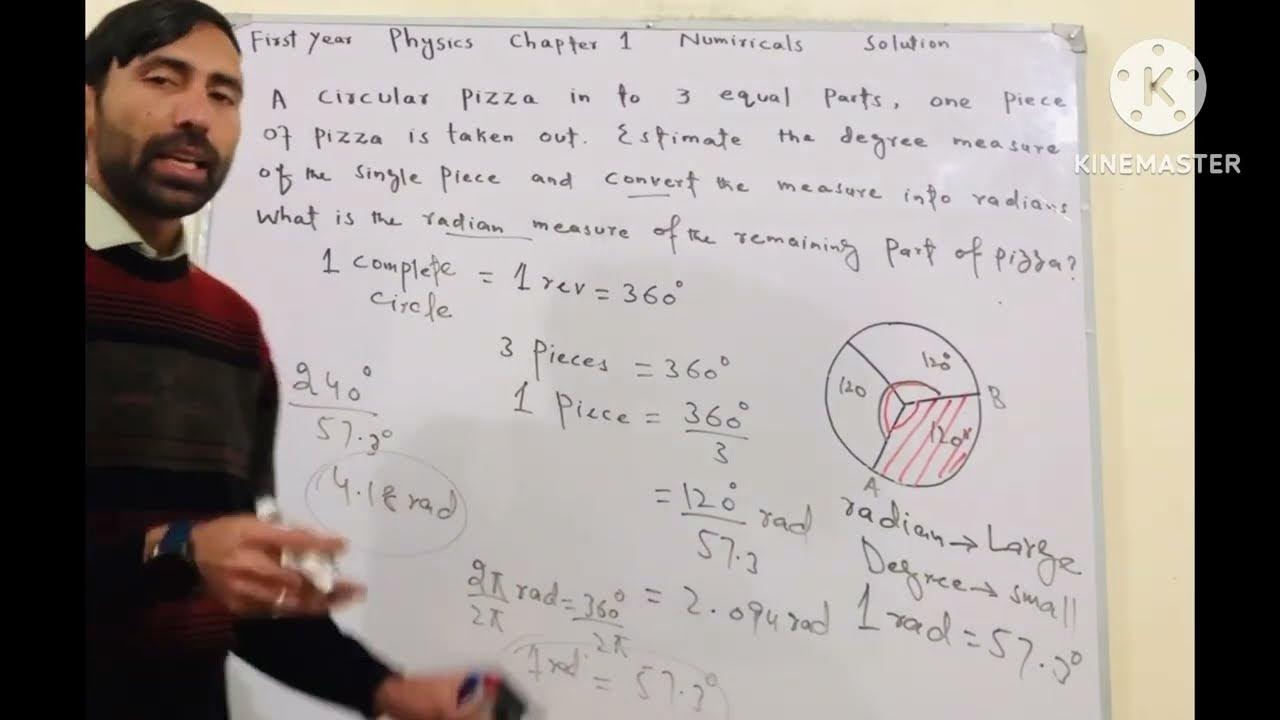 First Year Physics Chapter 1 Numiricals Solution
A Circular Pizza in to 3 equal Parts, one piece
of pizza is taken out. Estimate the degree measure
of the single piece and convert the measure into radians
What is the radian measure of the remaining part of pizza?
1 complete circle = 1 rev = 360°
3 Pieces = 360°
1 Piece = 360°
3
= 120° rad
57.3
= 2.094 rad
240°
57.3°
4.18 rad
2π rad = 360°
2π 2π
1 rad = 57.3°
120°
120
120°
A
B
radian → Large
Degree → small
1 rad = 57.3°
K
KINEMASTER